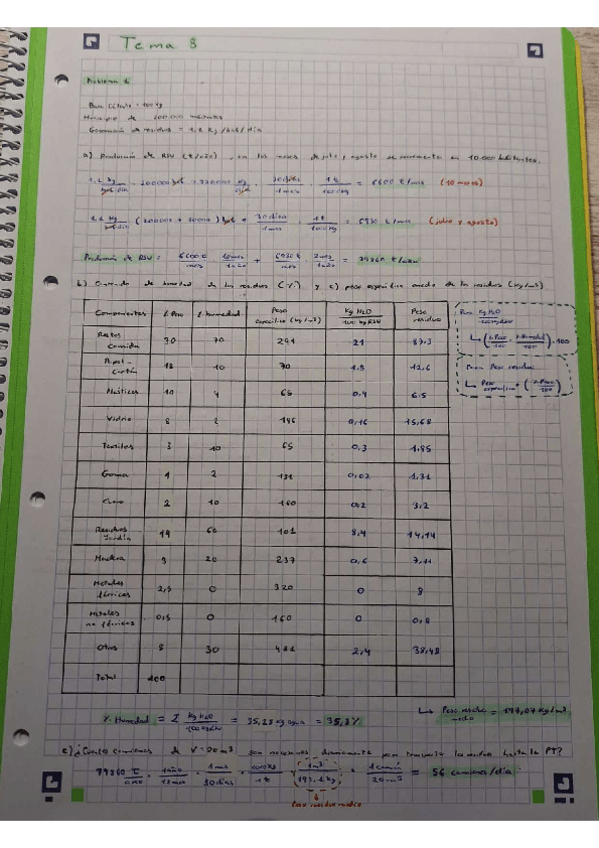 Tema 8
Problema 6
Base Cálculo = 100 kg
Municipio de 200.000 habitantes
Generación de residuos = 1,1 kg/hab/día
a) Producción de RSU (t/año), en los meses de julio y agosto se incrementa en 10.000 habitantes.
200000 hab = 220000 kg/día · 30 días/1 mes · 1 t/1000 kg = 6600 t/mes (10 meses)
(200000 + 10000) hab · 30 días/1 mes · 1 t/1000 kg = 6930 t/mes (julio y agosto)
Producción de RSU = 6600 t/mes · 10 mes/1 año + 6930 t/mes · 2 mes/1 año = 79860 t/año
b) Contenido de humedad de los residuos (%) y c) peso específico medio de los residuos (kg/m3)
Componentes % Peso % humedad Peso específico (kg/m3) Kg H2O/100 kg RSU Peso residuo
Restos Comida 30 70 291 21 87,3
Papel-cartón 18 10 70 1,8 12,6
Plásticos 10 4 65 0,4 6,5
Vidrio 8 2 196 0,16 15,68
Textiles 3 10 65 0,3 1,95
Goma 1 2 131 0,02 1,31
Cuero 2 10 160 0,2 3,2
Residuos Jardín 14 60 101 8,4 14,14
Madera 3 20 237 0,6 7,11
Metales férricos 2,5 0 320 0 8
Metales no férricos 0,5 0 160 0 0,8
Otros 8 30 481 2,4 38,48
Total 100
Para Kg H2O/100 kg RSU
↳ (% Peso/100 · % Humedad/100) · 100
Para Peso residuo
↳ Peso específico · (% Peso/100)
↳ Peso residuo medio = 197,07 kg/m3
% Humedad = Σ Kg H2O/100 kg RSU = 35,28 kg agua = 35,3%
c) ¿Cuántos camiones de V = 20 m3 son necesarios diariamente para transportar los residuos hasta la PT?
79860 t/año · 1 año/12 mes · 1 mes/30 días · 1000 kg/1 t · 1 m3/197,1 kg · 1 camión/20 m3 = 56 camiones/día
Peso residuo medio